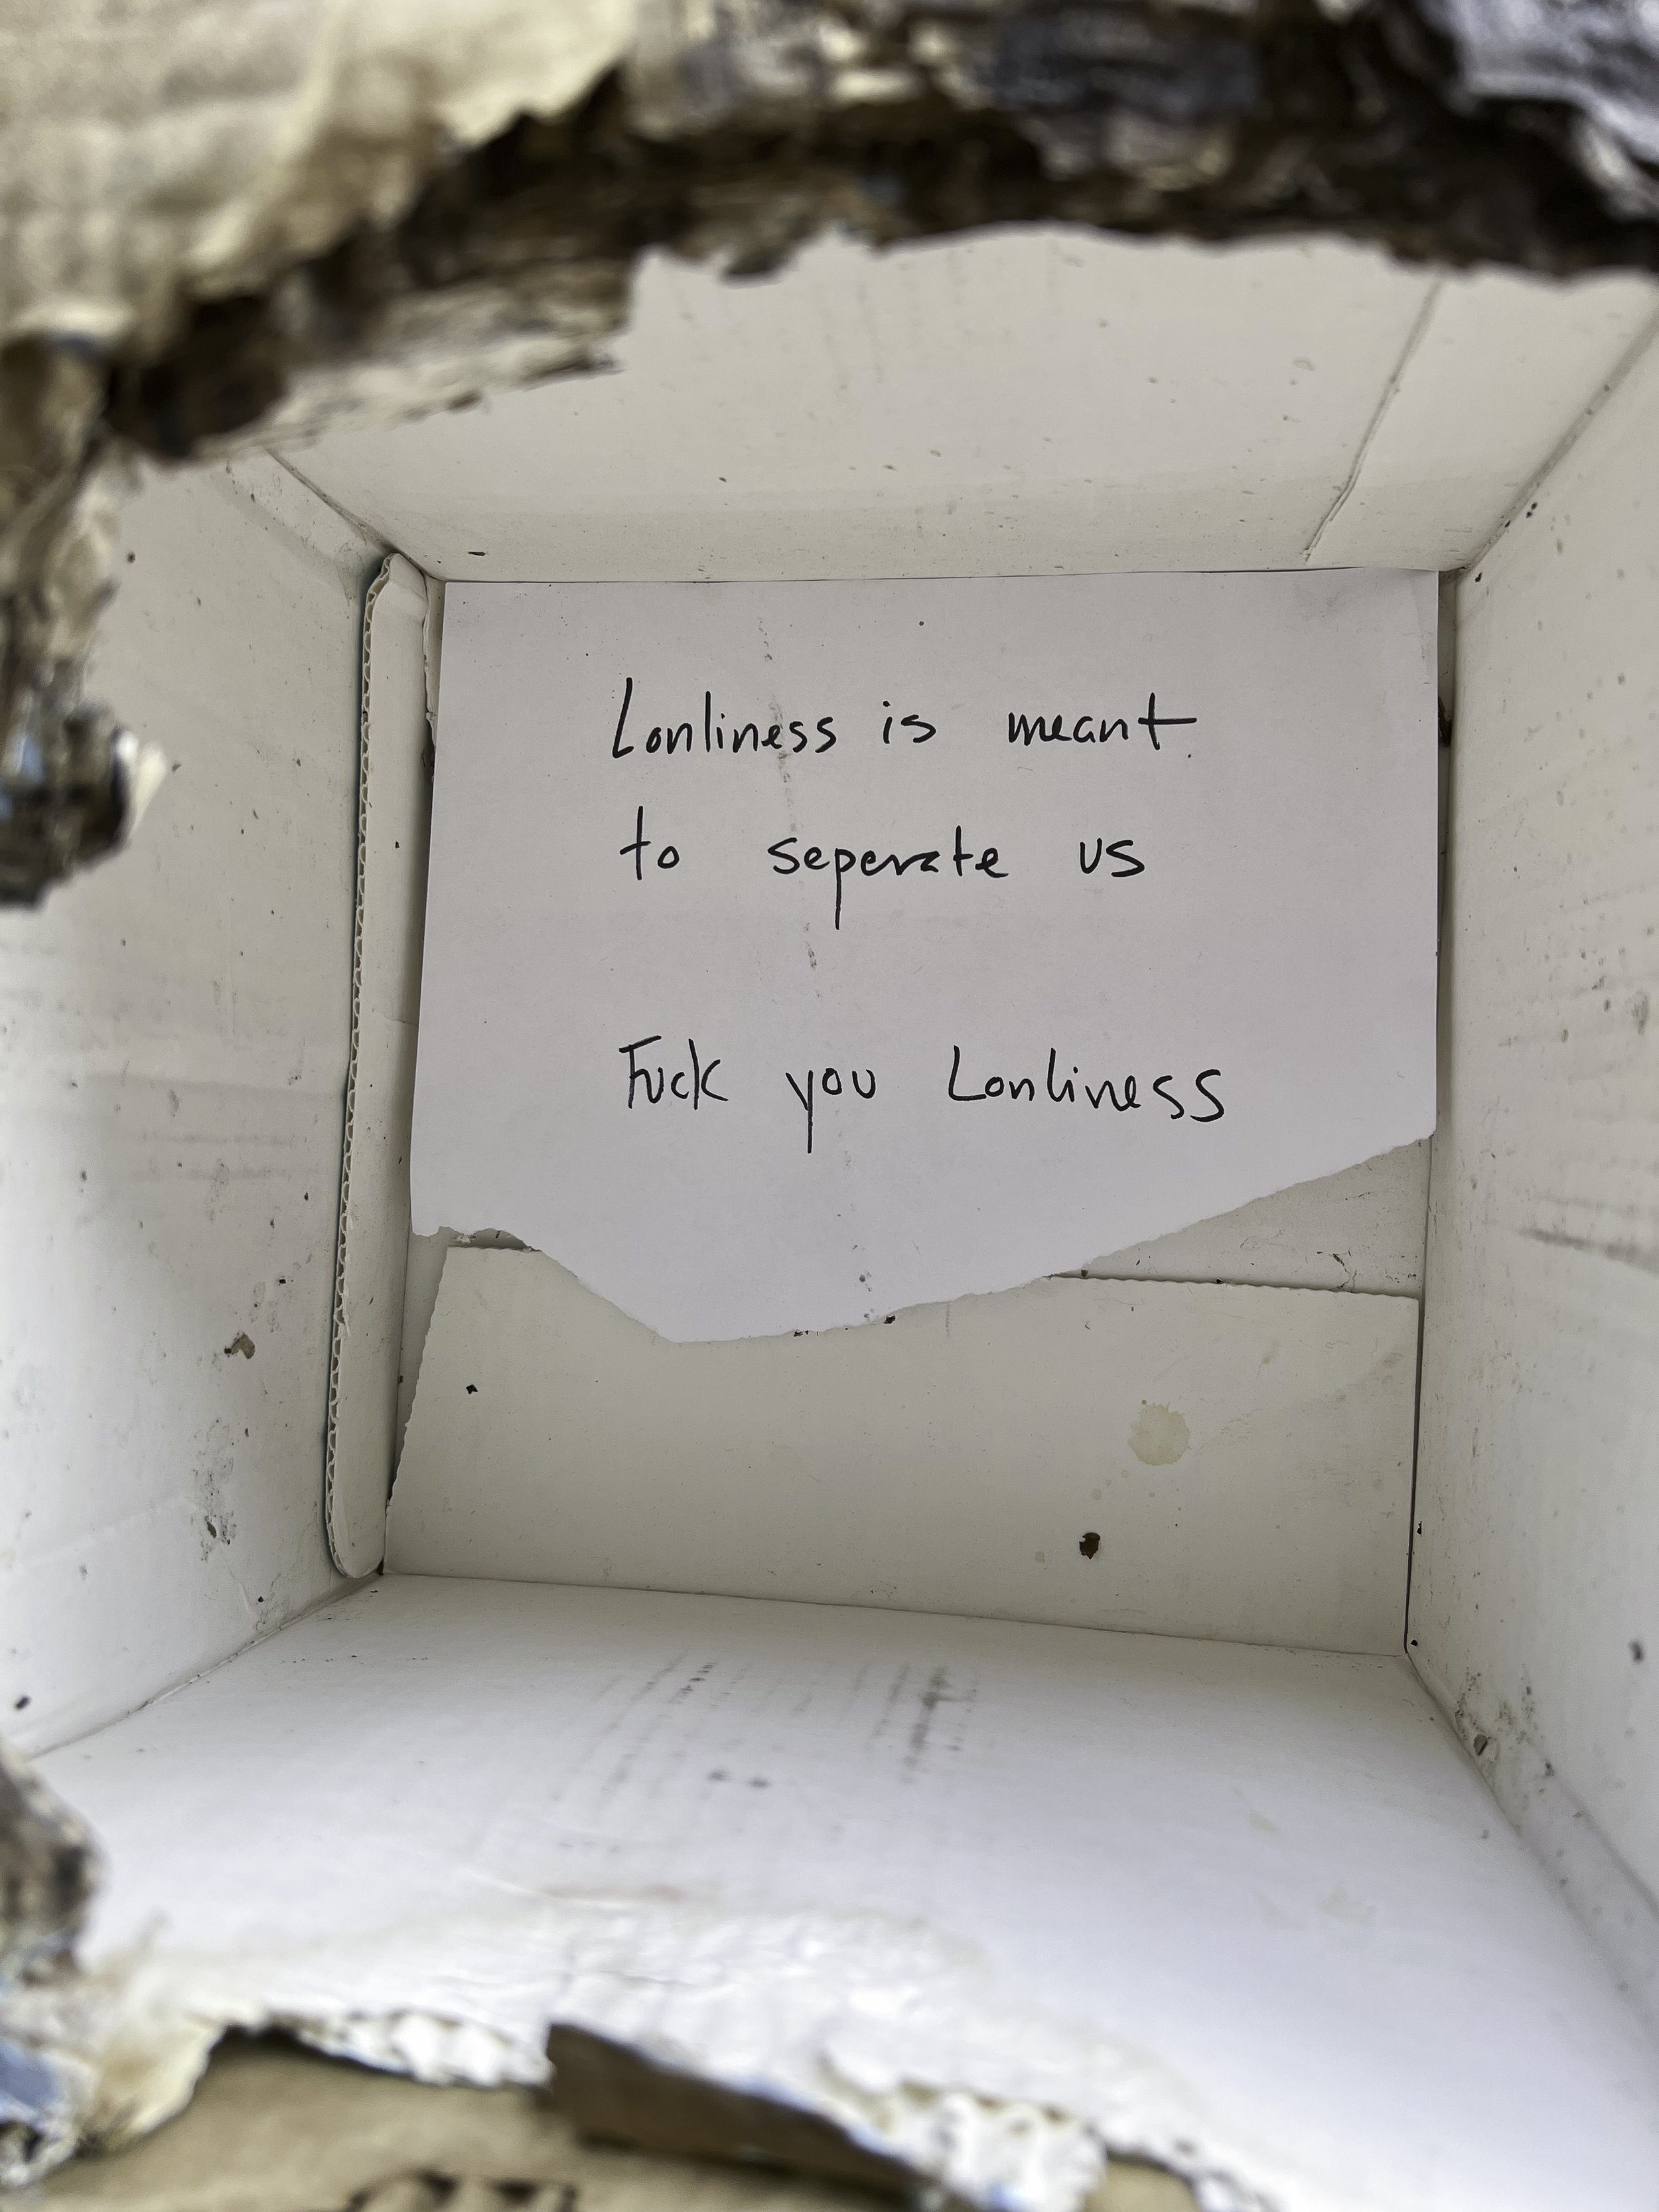 Lonliness is meant
to seperate us
Fuck you Lonliness